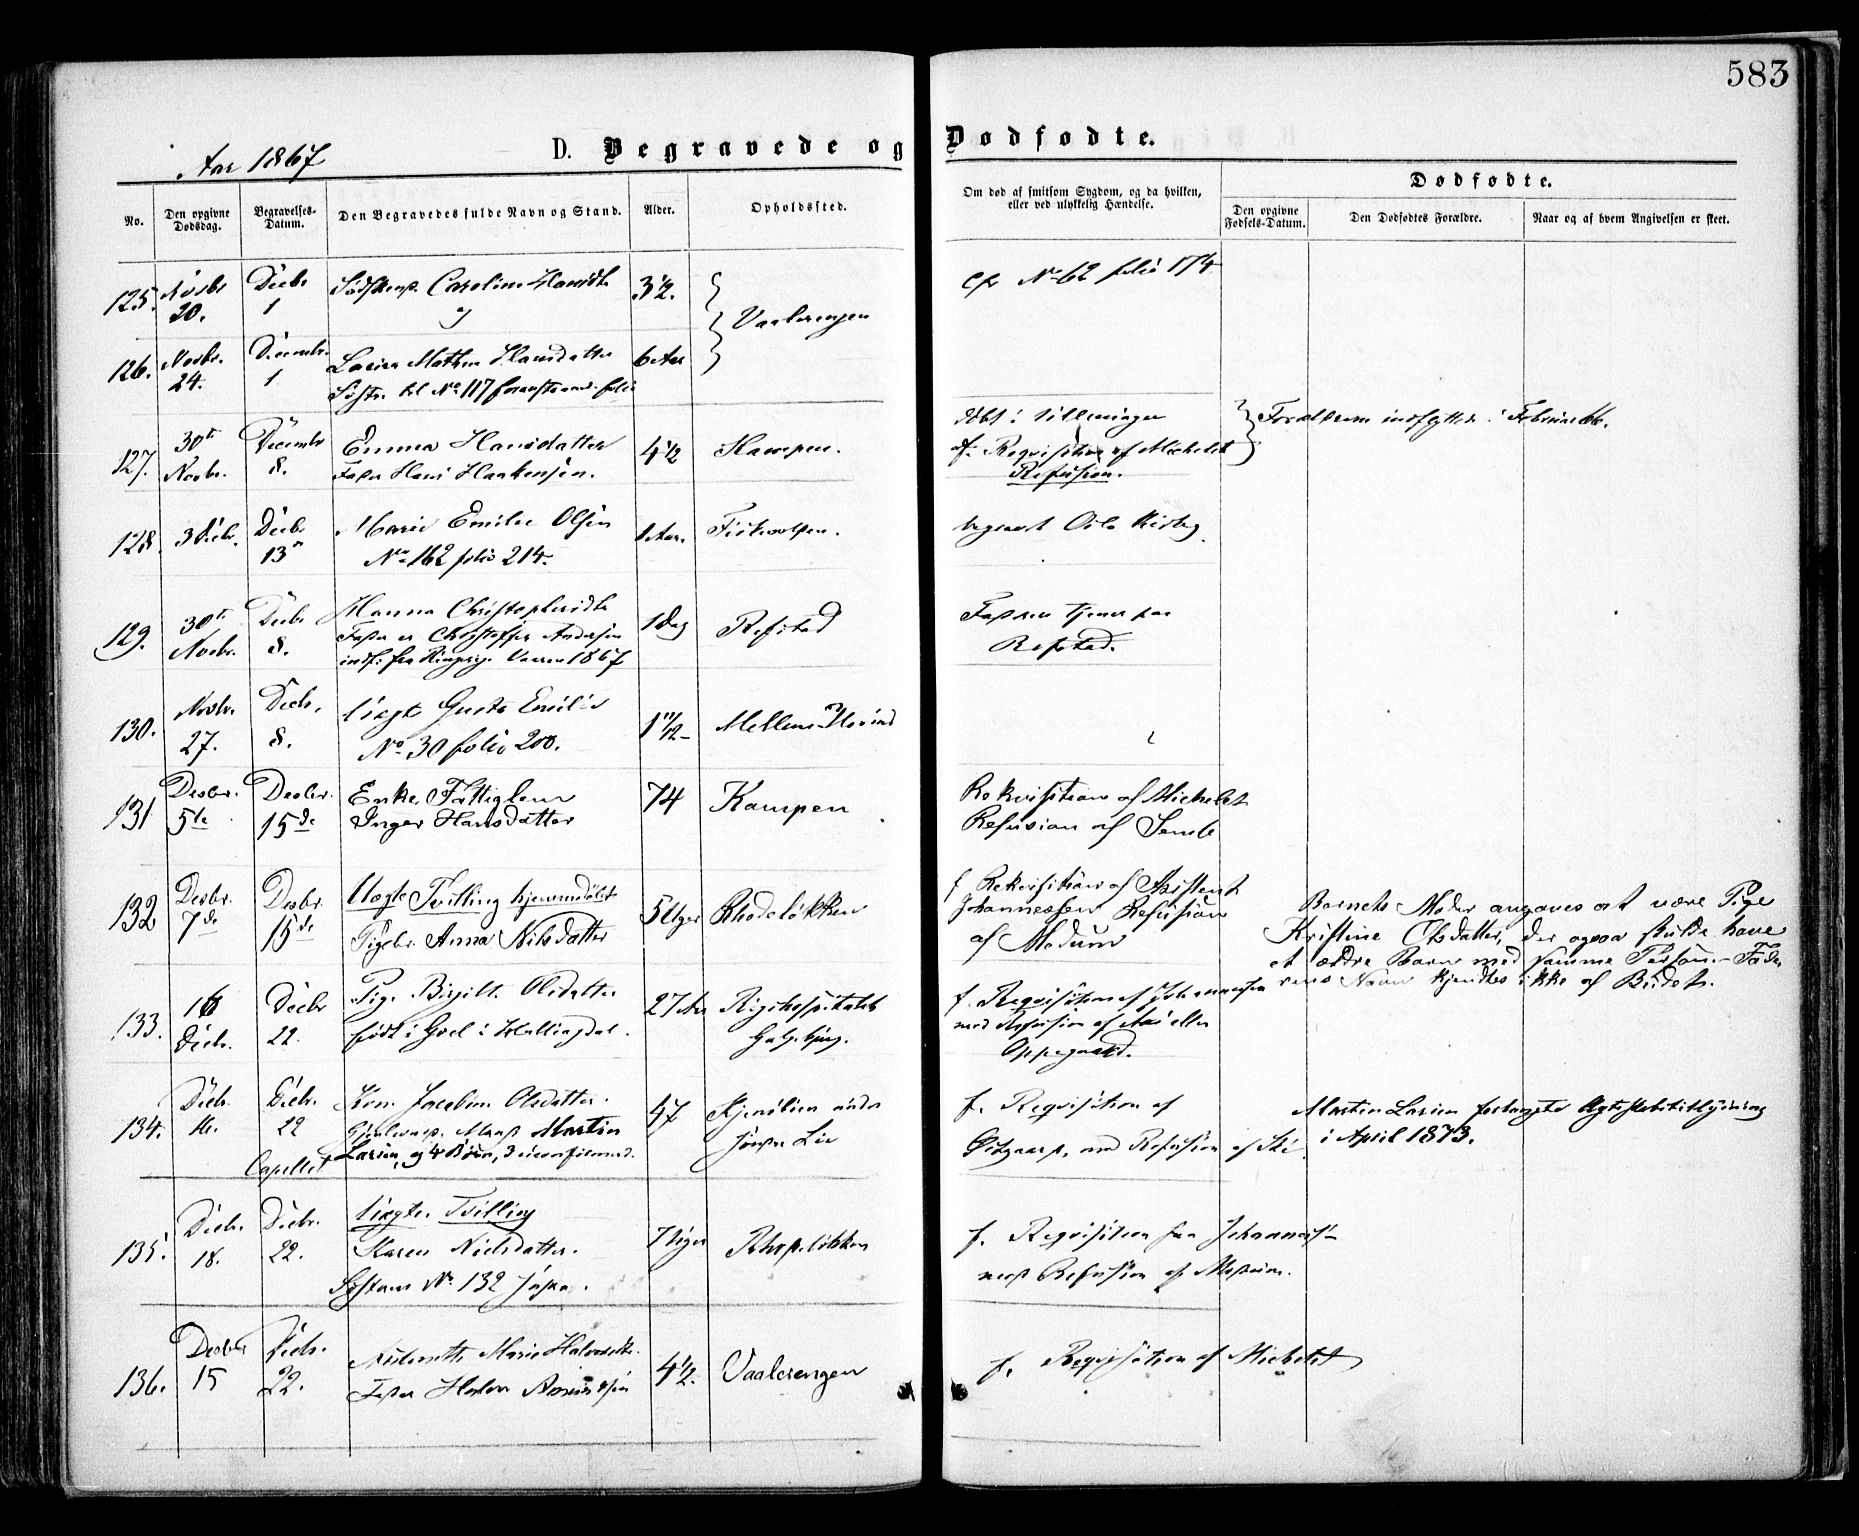 583
Aar 1867
D. Begravede og Dødfødte.
No.
Den opgivne Dødsdag.
Begravelses-Datum.
Den Begravedes fulde Navn og Stand.
Alder.
Opholdssted.
Om død af smitsom Sygdom, og da hvilken, eller ved ulykkelig Hændelse.
Dødfødte.
Den opgivne Fødsels-Datum.
Den Dødfødtes Forældre.
Naar og af hvem Angivelsen er skeet.
125. Novbr 20. Decbr 1
Caroline Hansdtr
og
3½.
Vaalerengen
cfr No 62 folio 174
126. Novbr. 24. Decembr. 1
Larine Mathea Hansdatter
Søstr. til No 117 foranstaaende folio
6 Aar
127. 30te Novbr. Decembr 8.
Emma Hansdatter
Fader Hans Haakensen.
4½
Kampen.
døbt i
f. Requisition af Michelet
Refusion.
Forældrene indflyttede i Februar 66.
128. 3 Decbr. Decbr 13de
Marie Emilie Olsen
No 162 folio 214.
1 Aar.
begravet Oslo Kirkeg
129. 30te Novbr. Decbr 8.
Hanna Christophersdtr
Fader er Christoffer Andersen
indf. fra Ringerige Vaaren 1867
1 Dag
Refstad
Faderen tjener paa
Refstad.
130. Novbr. 27. Decbr. 8.
Uægt. Gusta Emilie
No 30 folio 200.
1 11/12
Mellem-Hovind
131 Desbr. 5te Desbr. 15de
Enke, Fattiglem
Inger Hansdatter
74
Kampen
Rekvisition af Michelet
Refusion af Sende
132 Desbr. 7de Desbr 15de
Uægte Tvilling hjemmedøbt
Pigebr. Anna Nilsdatter
5 Uger
Rhodeløkken
f. Rekvisition af Assistent
Johannessen Refusion
af Modum
Barnets Moder angaves at være Pige
Kristine Olsdatter, der ogsaa skulde have
et ældre Barn med samme Person. Fade-
rens Navn kjendtes ikke af Budet.
133. 16 Decbr. Decbr 22.
Pige Birgitte Olsdatter
født i Goel i Hallingdal.
27 Aar
Rigshospitalet
Galgebjerg.
f. Requisition af Johannesen
med Refusion af Aas eller
Oppegaard.
134. Decbr. Decbr. 22
Capellet
Kone Jacobine Olsdatter.
Mand Martin
Larsen, og 4 Børn, 3 uconfirmered.
47
under
f. Requisition af
Østgaard, med Refusion af Ski
Martin Larsen forlangte Ægteskabstillysning
i April 1873.
135. Decbr. 18. Decbr. 22.
Uægte. Tvilling
Karen Nielsdatter.
Søstren No 132
7 Uger
Rhodeløkken
f. Requisition fra Johannes-
med Refusion af Modum.
136. Decbr 15 Decbr. 22.
Marie Halvorsdtr.
Fader Halvor
4½.
Vaalerengen
f. Requisition af Michelet